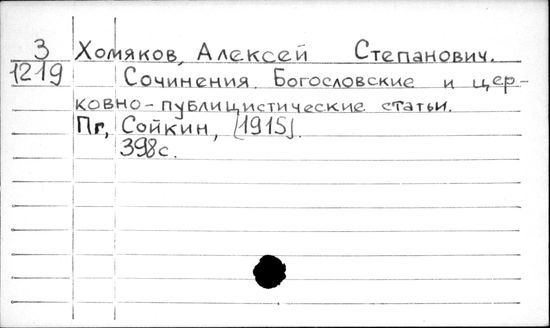 3 Хомяков, Алексей Степанович.
1219 Сочинения. Богословские и цер-
ковно-публицистические статьи.
Пг, Сойкин, [1915].
398с.